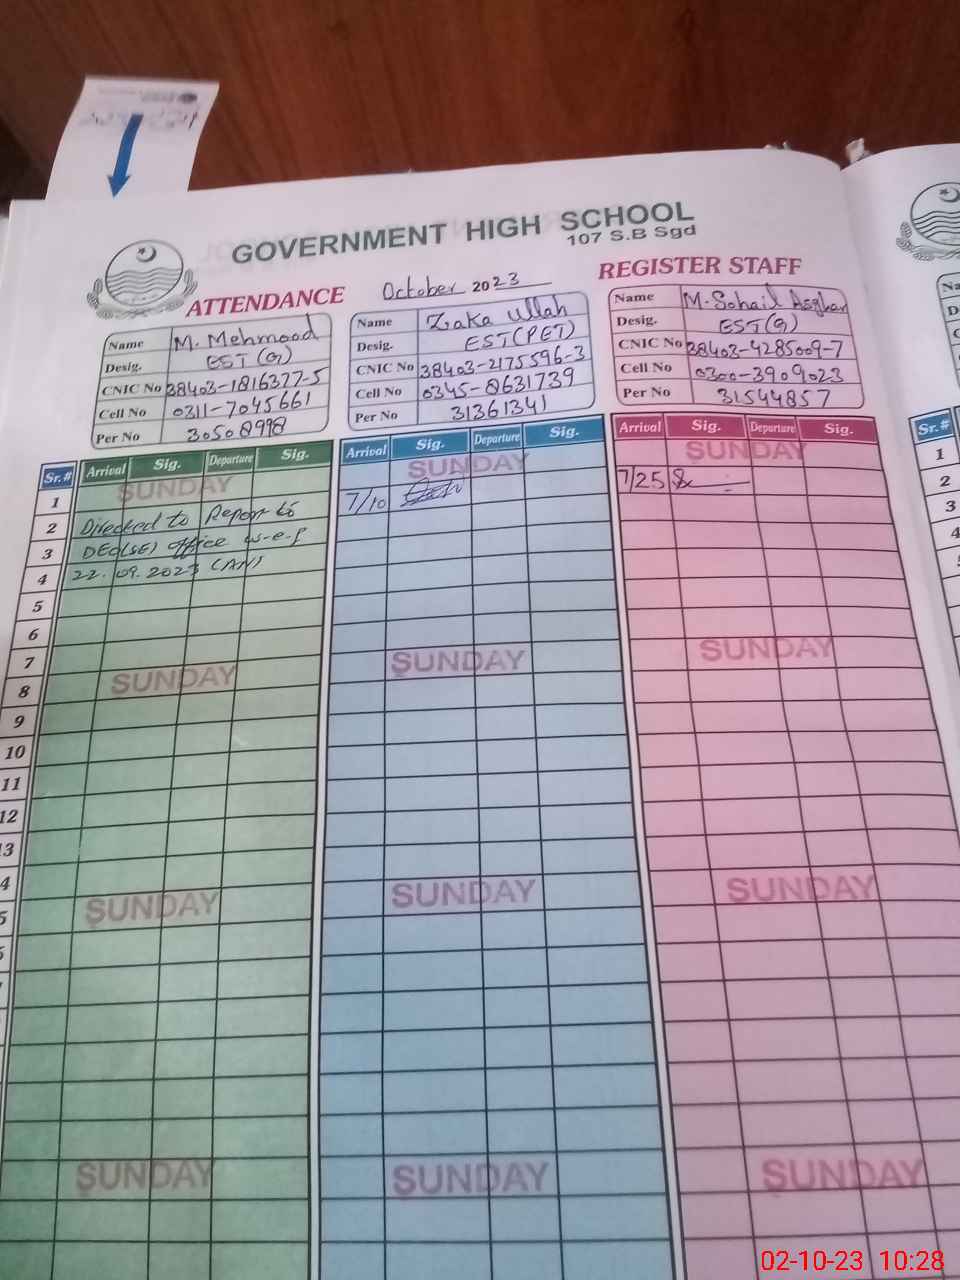 GOVERNMENT HIGH SCHOOL
107 S.B Sgd
ATTENDANCE October 2023 REGISTER STAFF
Name M. Mehmood
Desig. EST (G)
CNIC No 38403-1816377-5
Cell No 0311-7045661
Per No 30508998
Name Zaka Ullah
Desig. EST (PET)
CNIC No 38403-2175596-3
Cell No 0345-8631739
Per No 31361341
Name M. Sohail Asghar
Desig. EST (G)
CNIC No 38403-4285009-7
Cell No 0300-3909023
Per No 31544857
Sr.# Arrival Sig. Departure Sig. Arrival Sig. Departure Sig. Arrival Sig. Departure Sig. Sr.#
1 SUNDAY SUNDAY SUNDAY 1
2 Directed to Report to 7/10 7/25 2
3 DEO(SE) office w-e-f 3
4 22.09.2023 (AN) 4
5
6
7
8 SUNDAY SUNDAY SUNDAY
9
10
11
12
13
SUNDAY SUNDAY SUNDAY
SUNDAY SUNDAY SUNDAY
02-10-23 10:28